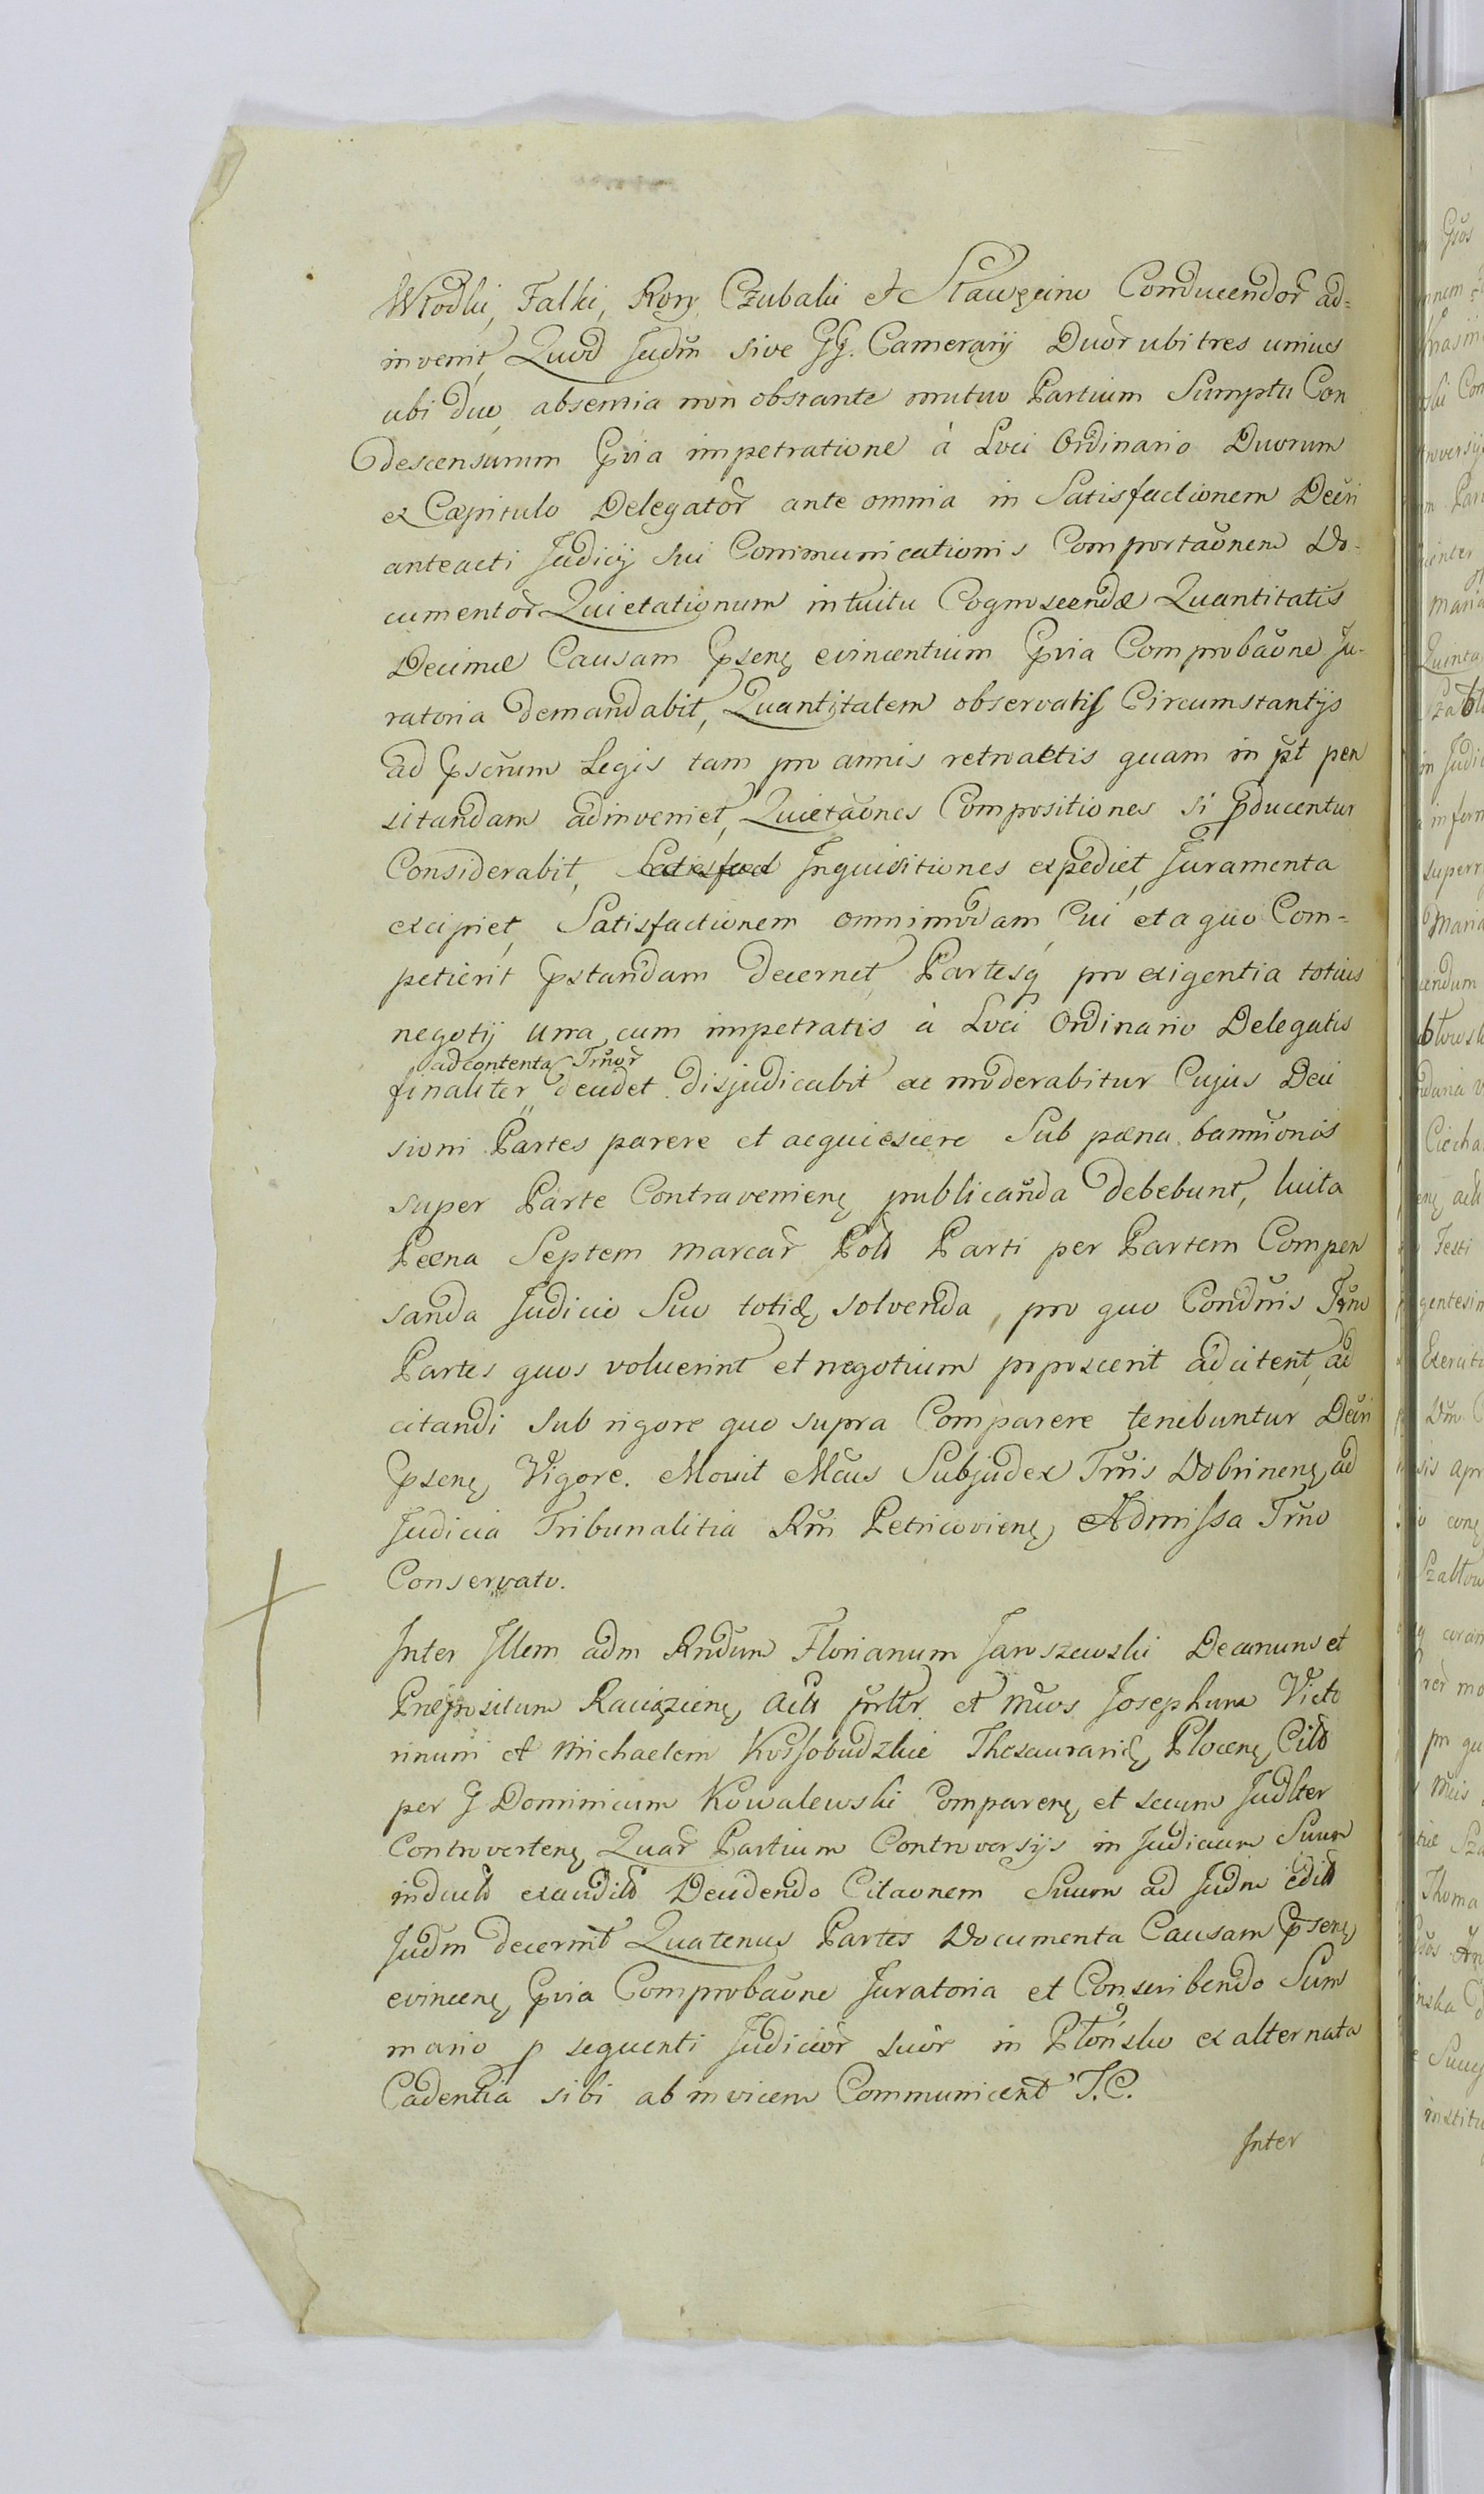 Włodki, Falki, Rony Czubaki et Sławęcino Conducendor̃ ad=
invenit, Quod Judm̃ sive GG. Camerarij Duor̃ ubi tres unius
ubi duo, absentia non obstante mutuo Partium Sumptu Con
descensurum Pvia impetratione à Loci Ordinario Duorum
ex Capitulo Delegator̃ ante omnia in Satisfactionem Decri
anteacti Judicij sui Communicationis Comportaõnem Do-
cumentor̃ Quietationum intuitu Cognoscendæ Quantitatis
Decimæ Causam Psenę evincentium Pvia Comprobaõne Ju-
ratoria demandabit, Quantitatem observatis Circumstantijs
ad Pscrum Legis tam pro annis retroactis quam in pt pen
sitandam adinveniet, Quietaões Compositiones si pducentur
Considerabit, Satisfact Inquisitiones expediet, Juramenta
excipiet, Satisfactionem omnimodam Cui et a quo Com=
petierit Pstandam decernet, Partesq pro exigentia totius
negotij una cum impetratis à Loci Ordinario Delegatis
ad contenta Trnor̃
finaliter decidet disjudicabit ac moderabitur Cujus Deci
sioni Partes parere et acquiescere Sub pæna bannionis
super Parte Contravenienę publicanda debebunt, luita
Pæna Septem marcar̃ Pols Parti per Partem Compen
sanda Judicio Suo totidę solvenda, pro quo Condnis Trno
Partes quos voluerint et negotium poposcerit adcitent, ad
citandi sub rigore quo supra Comparere tenebuntur Decri
Psenę Vigore. Movit Mcus Subjudex Trris Dobrinenę ad
Judicia Tribunalitia Rni Petricovienę Admissa Trno
Conservato.
Inter Illem adm Rndum Florianum Jaroszewski Decanum et
Præpositum Raciązienę Acts prltr et Mcos Josephum Victo
rinum et Michaelem Kossobudzkie Thesaurarid Plocenę Cits
per G Dominicum Kowalewski Comparenę et secum Judlter
Controvertenę Quar̃ Partium Controversijs in Judicium Suum
inducts exaudits Decidendo Citaonem Suam ad Judm edits
Judm decernit Quatenus Partes Documenta Causam Psenę
evincenę Pvia Comprobaõne Juratoria et Conscribendo Sum
mario p sequenti Judicior̃ suor̃ in Płońsko ex alternata
Cadentia sibi ab invicem Communicent T.C.
Inter